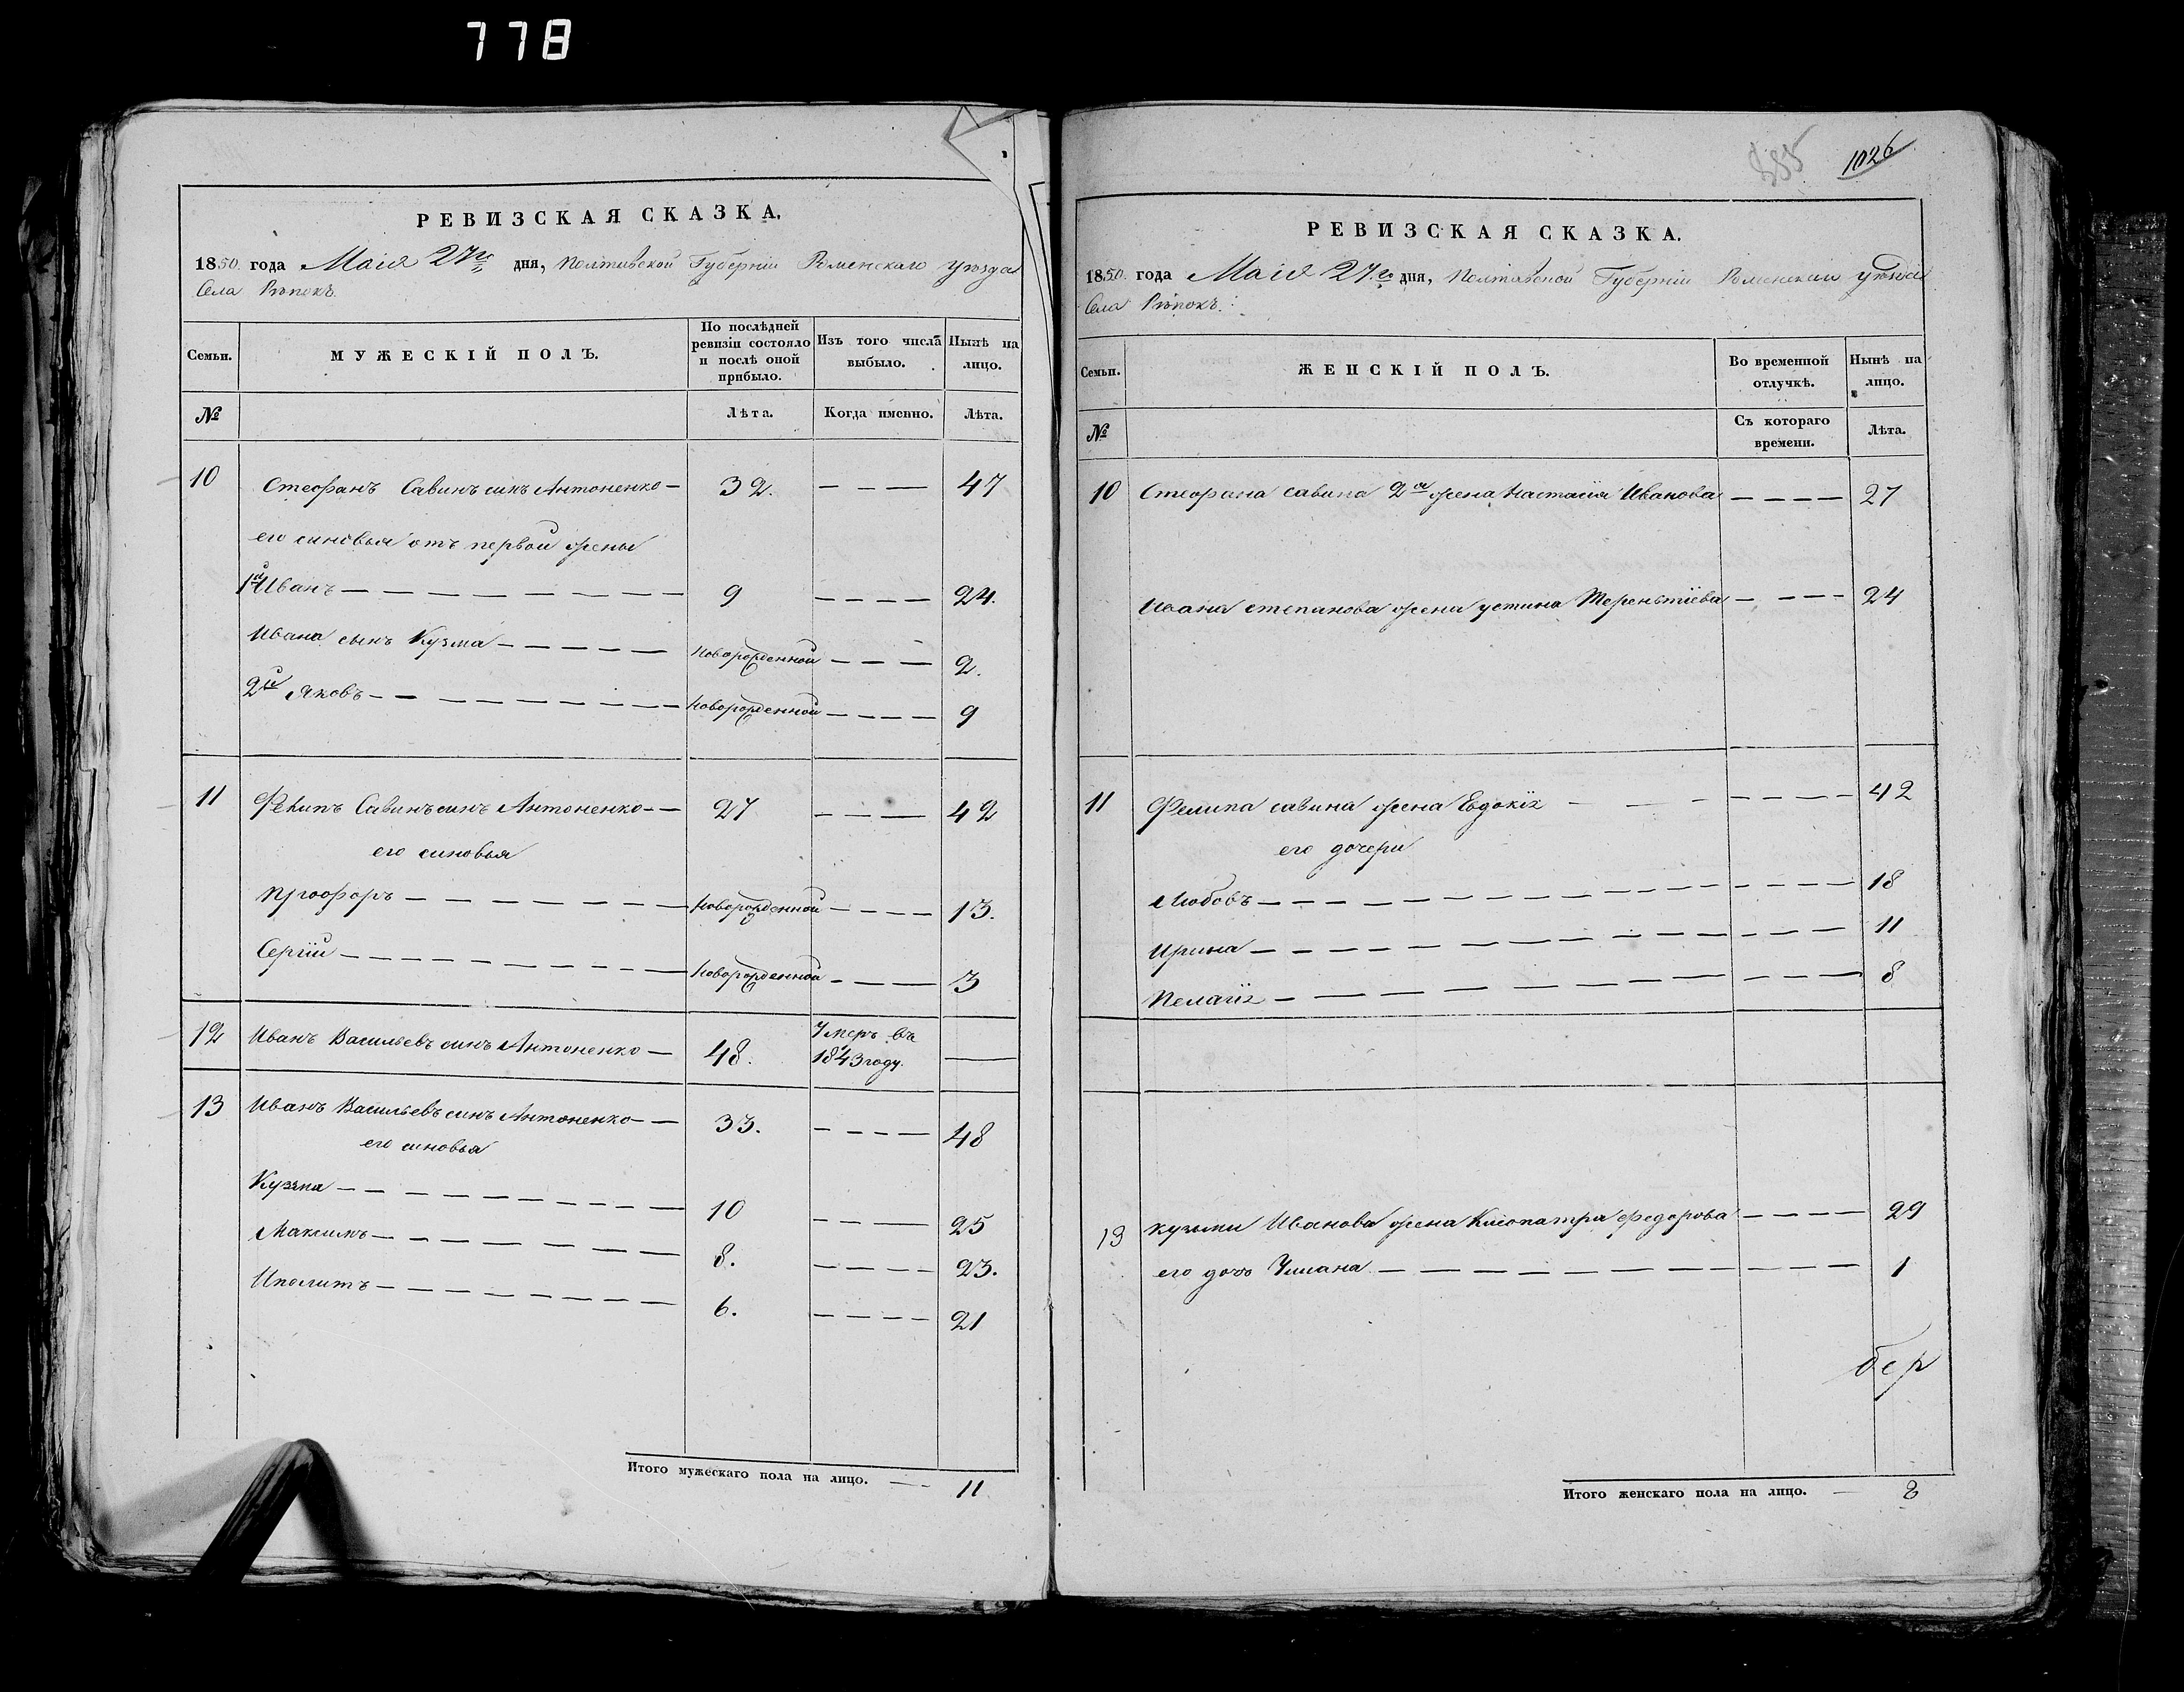 778
РЕВИЗСКАЯ СКАЗКА.
1850. года Маія 27го дня, Полтавской Губерніи Роменскаго уѣзда
Села Рѣпокъ.
Семьи.
МУЖЕСКІЙ ПОЛЪ.
По послѣдней ревизіи состояло и послѣ оной прибыло.
Изъ того числа выбыло.
Нынѣ на лицо.
№
Лѣта.
Когда именно.
Лѣта.
10 Стефанъ Савинъ синъ Антоненко — 32. — — — 47
его синовья отъ первой жены
1й Иванъ — 9 — — — — 24.
Ивана сынъ Кузма — новорожденной — — — 2.
2й Яковъ — новорожденной — — — — 9
11 Фелипъ Савинъ синъ Антоненко — 27 — — — 42
его синовья
Профоръ — новорожденной — — — — 13.
Сергій — новорожденной — — — 3
12 Иванъ Васильевъ синъ Антоненко — 48. Умеръ въ 1843 году. —
13 Иванъ Васильевъ синъ Антоненко — 33. — — — — 48
его синовья
Кузма — 10 — — — 25
Максимъ — 8. — — — — 23.
Иполитъ — 6. — — — — 21
Итого мужескаго пола на лицо. — 11
1026
РЕВИЗСКАЯ СКАЗКА.
1850. года Маія 27.го дня, Полтавской Губерніи Роменскаго уѣзда
Села Рѣпокъ.
Семьи.
ЖЕНСКІЙ ПОЛЪ.
Во временной отлучкѣ.
Нынѣ на лицо.
№
Съ котораго времени.
Лѣта.
10 Стефана савина 2я жена Настасія Иванова — — — — 27
Ивана степанова жена устина Терентіева — — — — 24
11 Фелипа савина жена Евдокія — — — — 42
его дочери
Любовъ — 18
Ирина — 11
Пелагія — 8
13 кузьми Иванова жена Клеопатра Федорова — — — — 29
его дочъ — 1
Итого женскаго пола на лицо. — 8